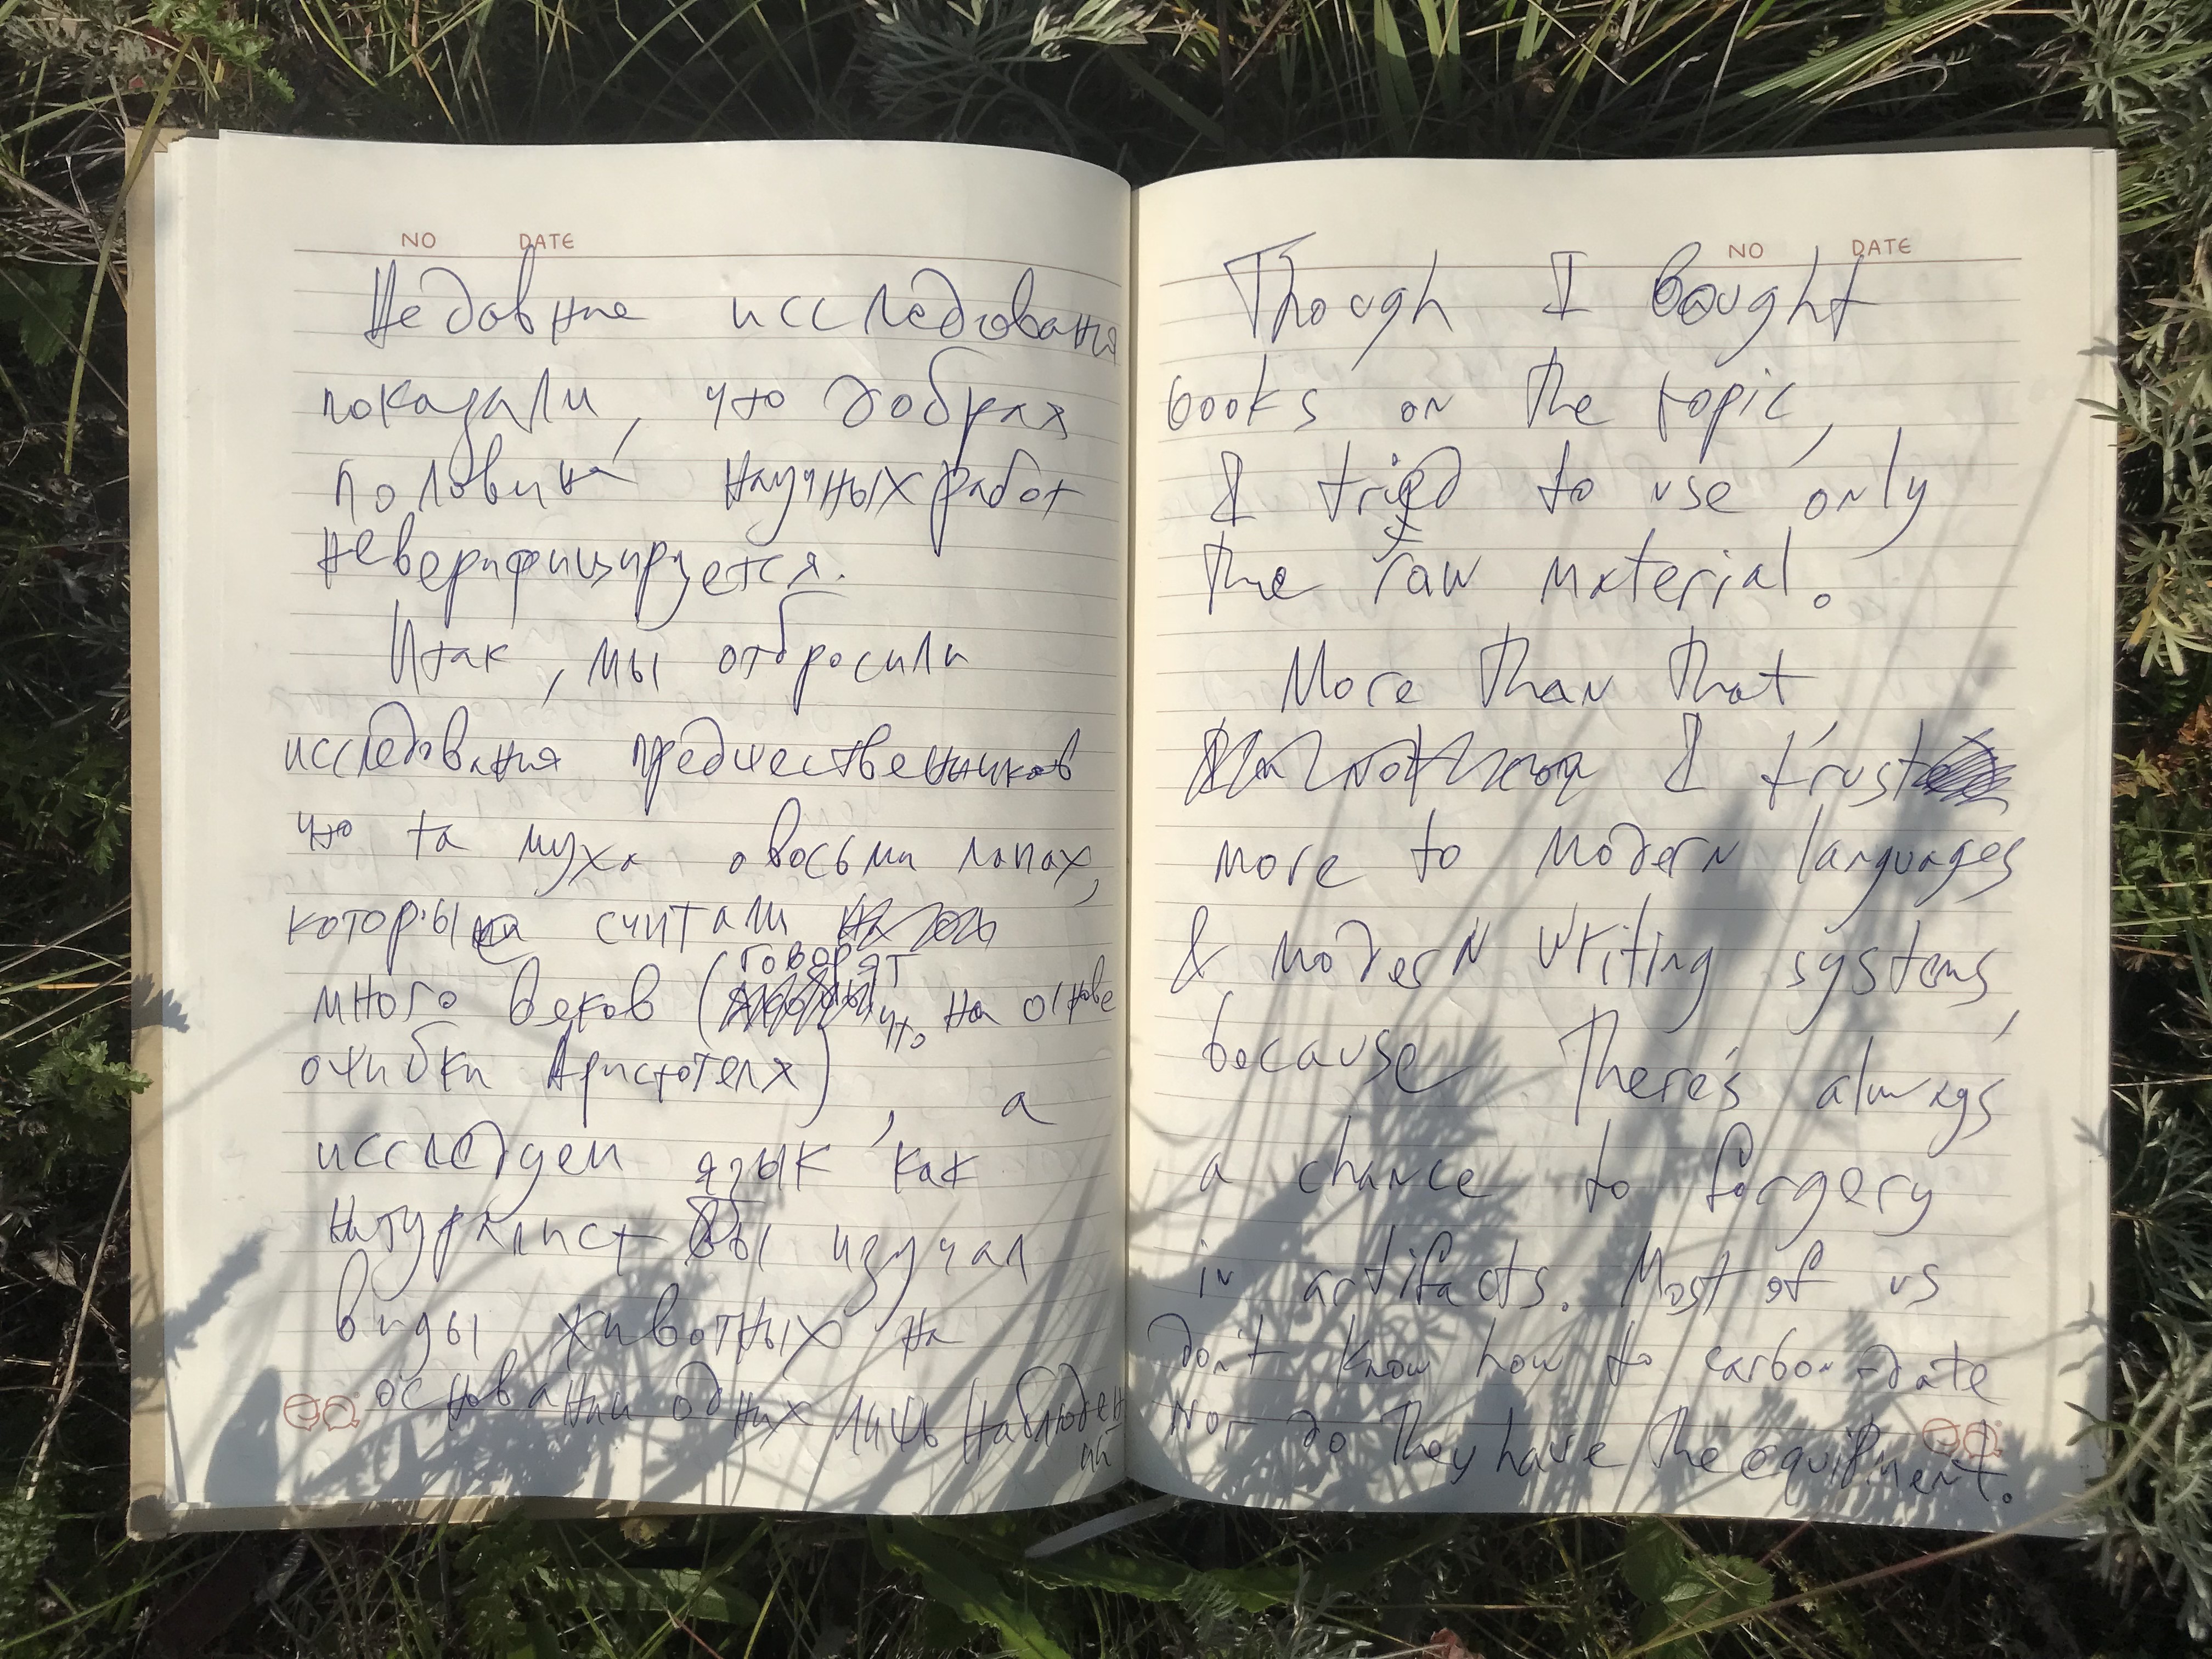 NO DATE
Недавние исследования
показали, что добрая
половина научных работ
неверифицируется.
Итак, мы отбросили
исследования предшественников
что та муха о восьми лапах,
которы считали
много веков (говорят что на основе
ошибки Аристотеля)
а
исследуем язык, как
натуралист бы изучал
виды животных, на
основании одних лишь наблюдений
NO DATE
Though I bought
books on the topic,
I tried to use only
the raw material.
More than that
I trust
more to modern languages
& modern writing systems,
because there's always
a chance to forgery
in artifacts. Most of us
don't know how to carbon-date
nor do they have the equipment.